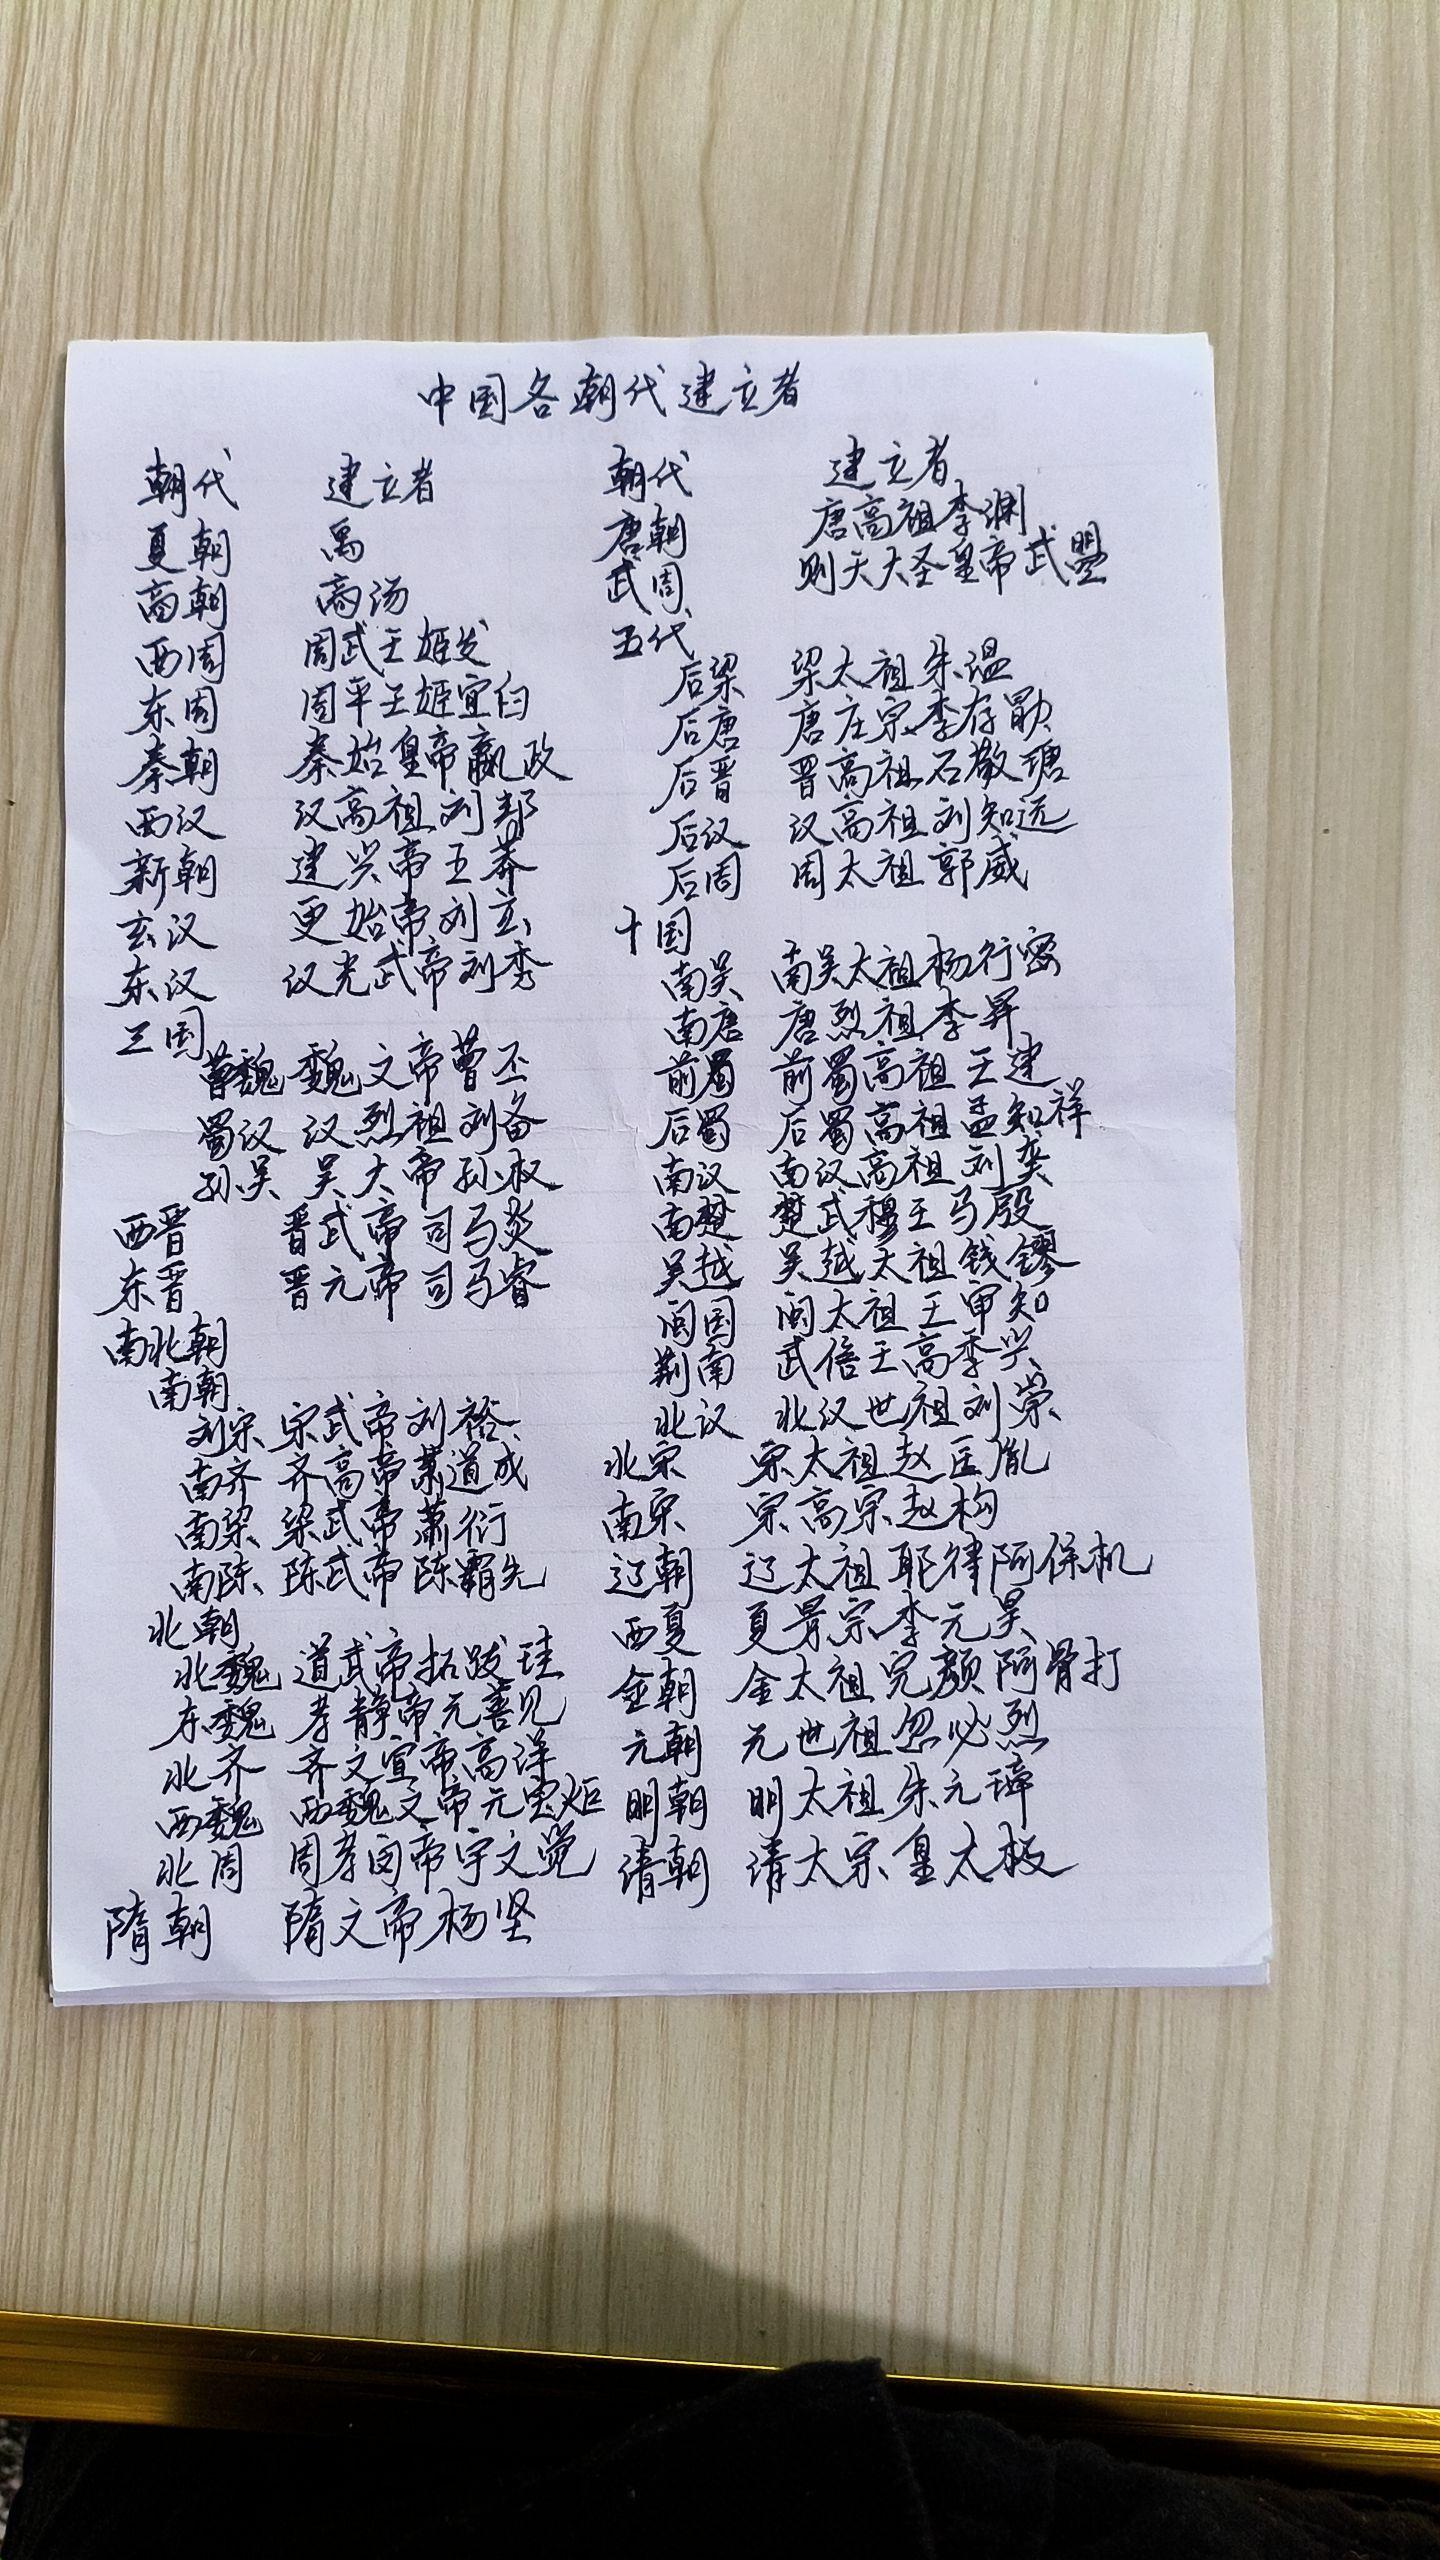 中国各朝代建立者
朝代 建立者
夏朝 禹
商朝 商汤
西周 周武王姬发
东周 周平王姬宜臼
秦朝 秦始皇帝嬴政
西汉 汉高祖刘邦
新朝 建兴帝王莽
玄汉 更始帝刘玄
东汉 汉光武帝刘秀
三国
曹魏 魏文帝曹丕
蜀汉 汉烈祖刘备
孙吴 吴大帝孙权
西晋 晋武帝司马炎
东晋 晋元帝司马睿
南北朝
南朝
刘宋 宋武帝刘裕
南齐 齐高帝萧道成
南梁 梁武帝萧衍
南陈 陈武帝陈霸先
北朝
北魏 道武帝拓跋珪
东魏 孝静帝元善见
北齐 齐文宣帝高洋
西魏 西魏文帝元宝炬
北周 周孝闵帝宇文觉
隋朝 隋文帝杨坚
朝代 建立者
唐朝 唐高祖李渊
武周 则天大圣皇帝武曌
五代
后梁 梁太祖朱温
后唐 唐庄宗李存勖
后晋 晋高祖石敬瑭
后汉 汉高祖刘知远
后周 周太祖郭威
十国
南吴 南吴太祖杨行密
南唐 唐烈祖李昪
前蜀 前蜀高祖王建
后蜀 后蜀高祖孟知祥
南汉 南汉高祖刘䶮
南楚 楚武穆王马殷
吴越 吴越太祖钱镠
闽国 闽太祖王审知
荆南 武信王高季兴
北汉 北汉世祖刘崇
北宋 宋太祖赵匡胤
南宋 宋高宗赵构
辽朝 辽太祖耶律阿保机
西夏 夏景宗李元昊
金朝 金太祖完颜阿骨打
元朝 元世祖忽必烈
明朝 明太祖朱元璋
清朝 清太宗皇太极